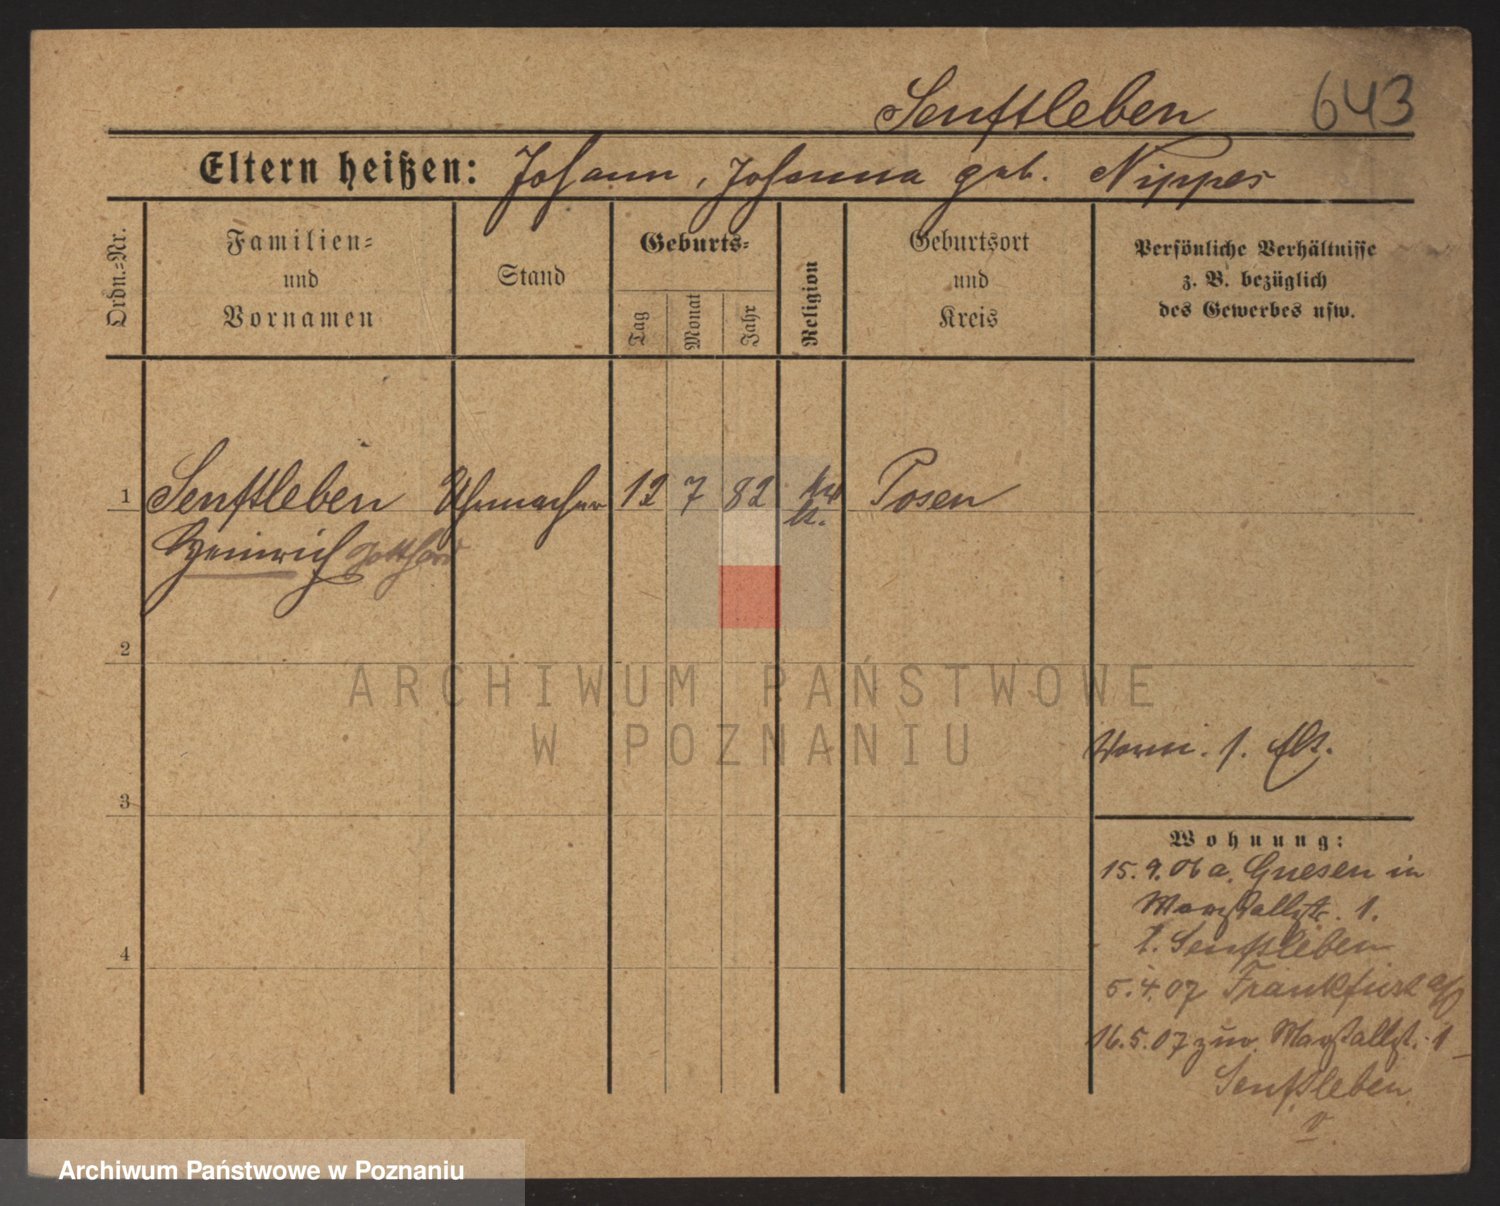 Senftleben 643
Eltern heißen: Johann, Johanna geb. Nippes
Ordn.=Nr.
Familien=
und
Vornamen
Stand
Geburts=
Tag
Monat
Jahr
Religion
Geburtsort
und
Kreis
Persönliche Verhältnisse
z. B. bezüglich
des Gewerbes usw.
1 Senftleben Uhrmacher 12 7 82 Posen
Heinrich Gotthard
2
ARCHIWUM PAŃSTWOWE
W POZNANIU
3
Wohnung:
15.9.06 a. Gnesen in
Marstallstr. 1.
Senftleben
4
5.4.07 Frankfurt
16.5.07 zur. Marstallst. 1
Senftleben
Archiwum Państwowe w Poznaniu